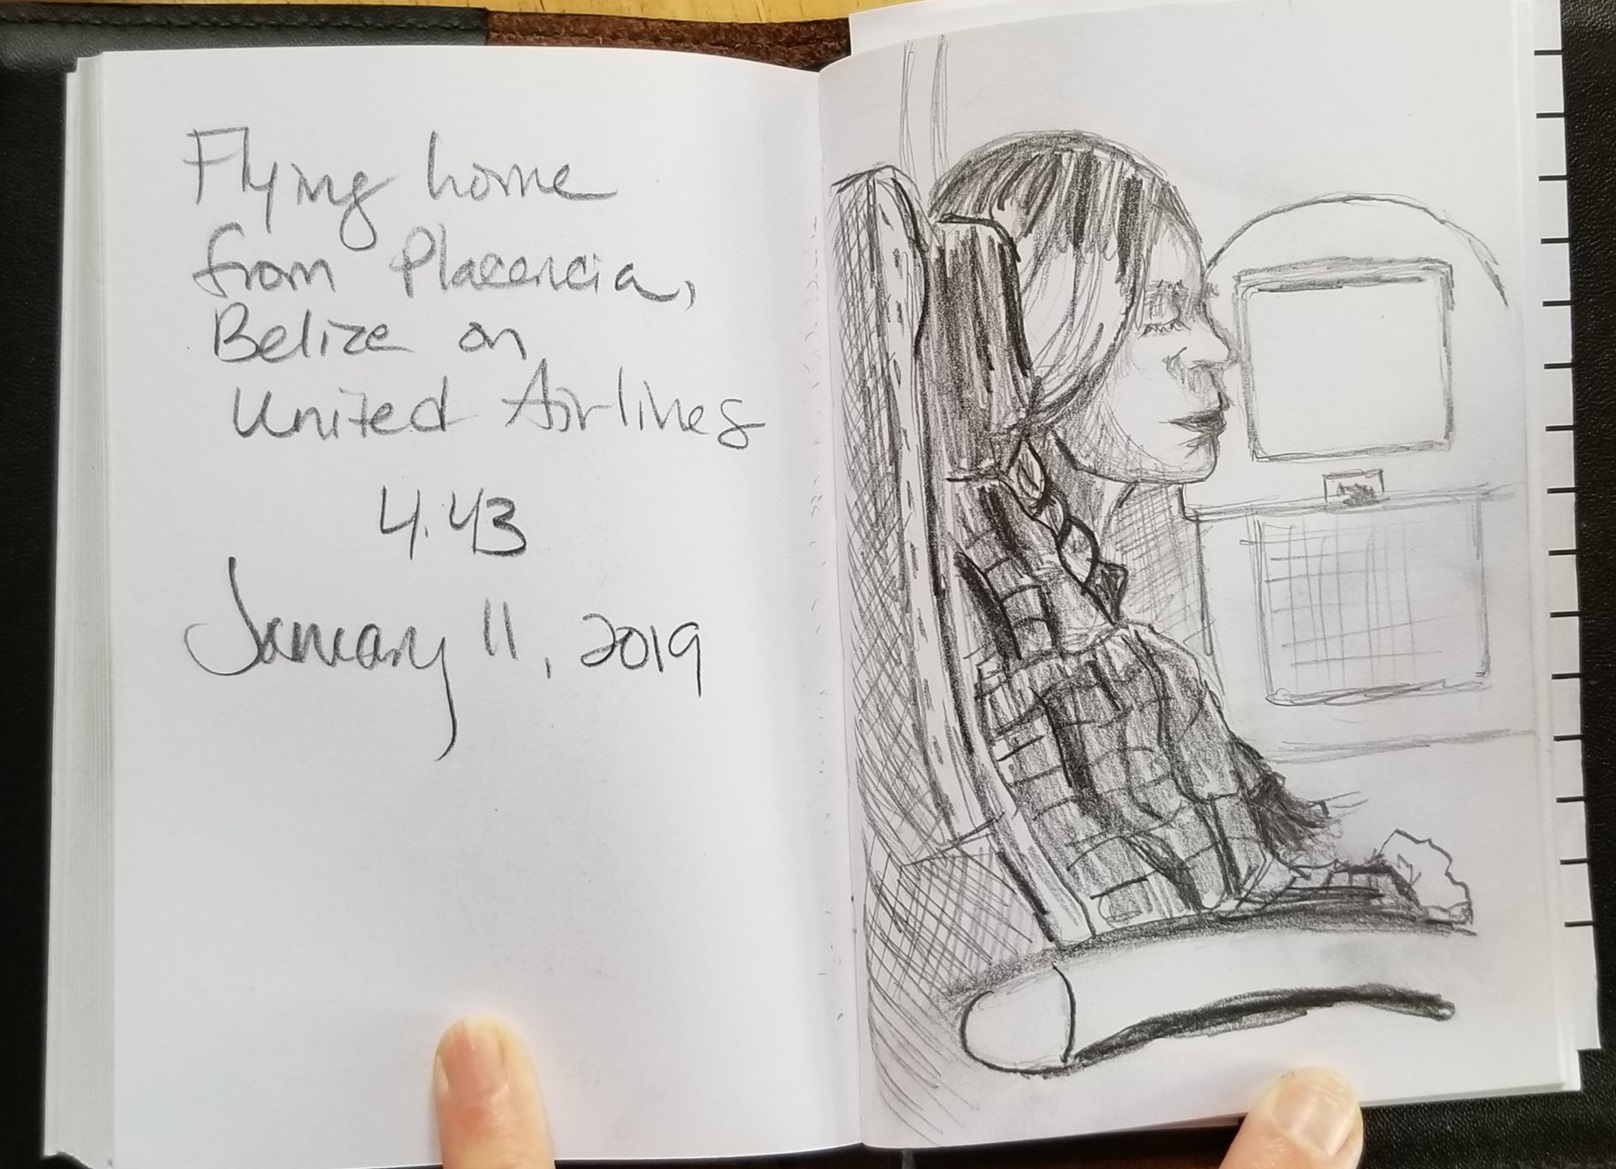 Flying home
from Placencia,
Belize on
United Airlines
4:43
January 11, 2019